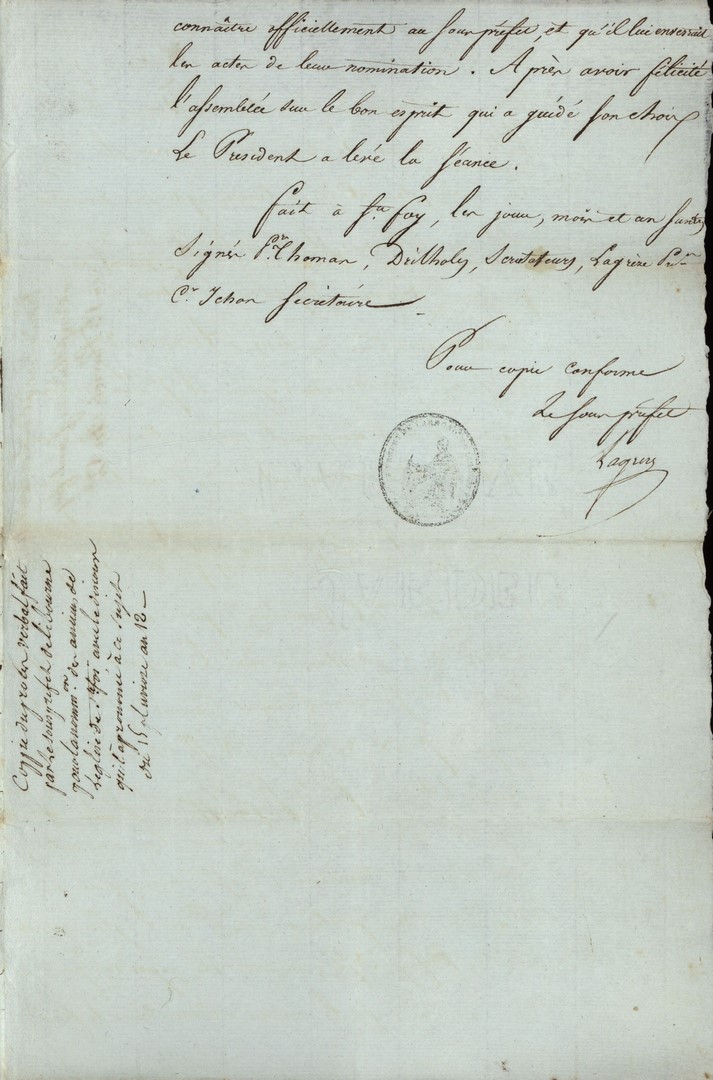 connaître officiellement au sous préfet, et qu'il lui enverrait
les actes de leur nomination. Après avoir félicité
l'assemblée sur le bon esprit qui a guidé son choix
Le Président a levé la séance.
fait à Ste foy, les jour, mois et an susdits
signés Pre Thomas, Dritholes, Scrutateurs, Lagrèze
Cr Ichon Secrétaire
Pour copie conforme
Le sous préfet
Lagreze
Coppie du proces verbal fait
par le sous prefet de libourne
pour la nommon des anciens de
l'eglise de Ste foi avec le discour
qu'il a prononcé à ce sujet
du 15 pluviose an 12